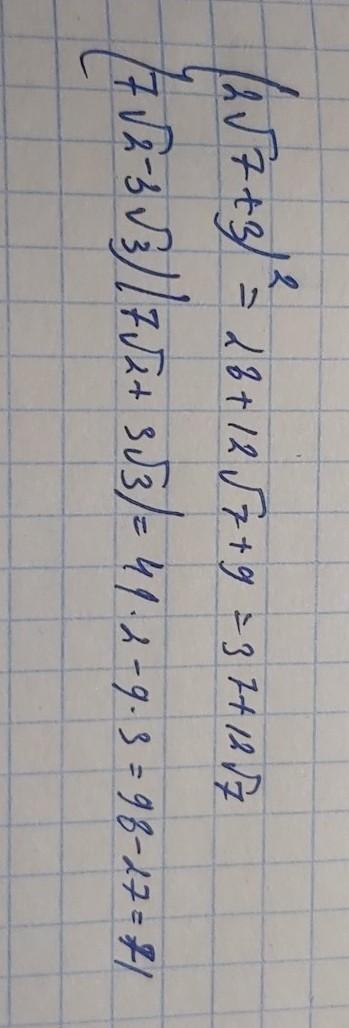 (2√7+3)² = 28+12√7+9 = 37+12√7
(7√2-3√3)(7√2+3√3) = 49·2-9·3 = 98-27 = 71